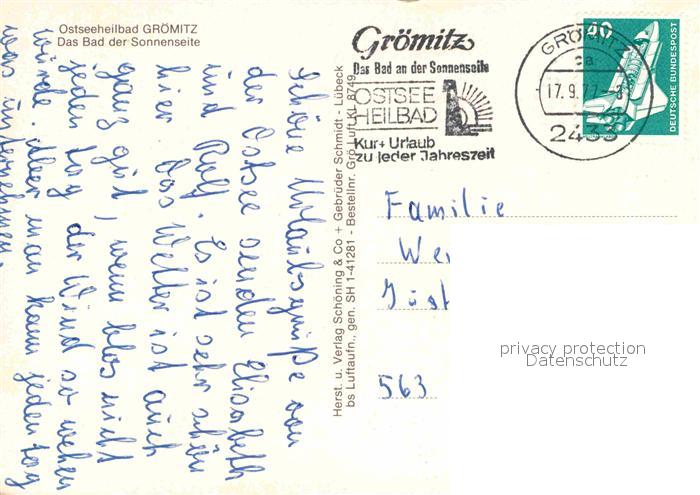 Ostseeheilbad GRÖMITZ
Das Bad der Sonnenseite
Schöne Urlaubsgrüße von
der Ostsee senden Elisabeth
und Rolf. Es ist sehr schön
hier das Wetter ist auch
ganz gut, wenn blos nicht
jeden tag der Wind so wehen
würde. Aber man kann jeden tag
was unternehmen
Herst. u. Verlag Schöning & Co + Gebrüder Schmidt - Lübeck
bs Luftaufn., gen. SH 1-41281 - Bestellnr. Grö Luft KL 8749
Grömitz
Das Bad an der Sonnenseite
OSTSEE
HEILBAD
Kur + Urlaub
zu jeder Jahreszeit
GRÖMITZ
17.9.77
2433
40
DEUTSCHE BUNDESPOST
Familie
We
Just
563
privacy protection
Datenschutz